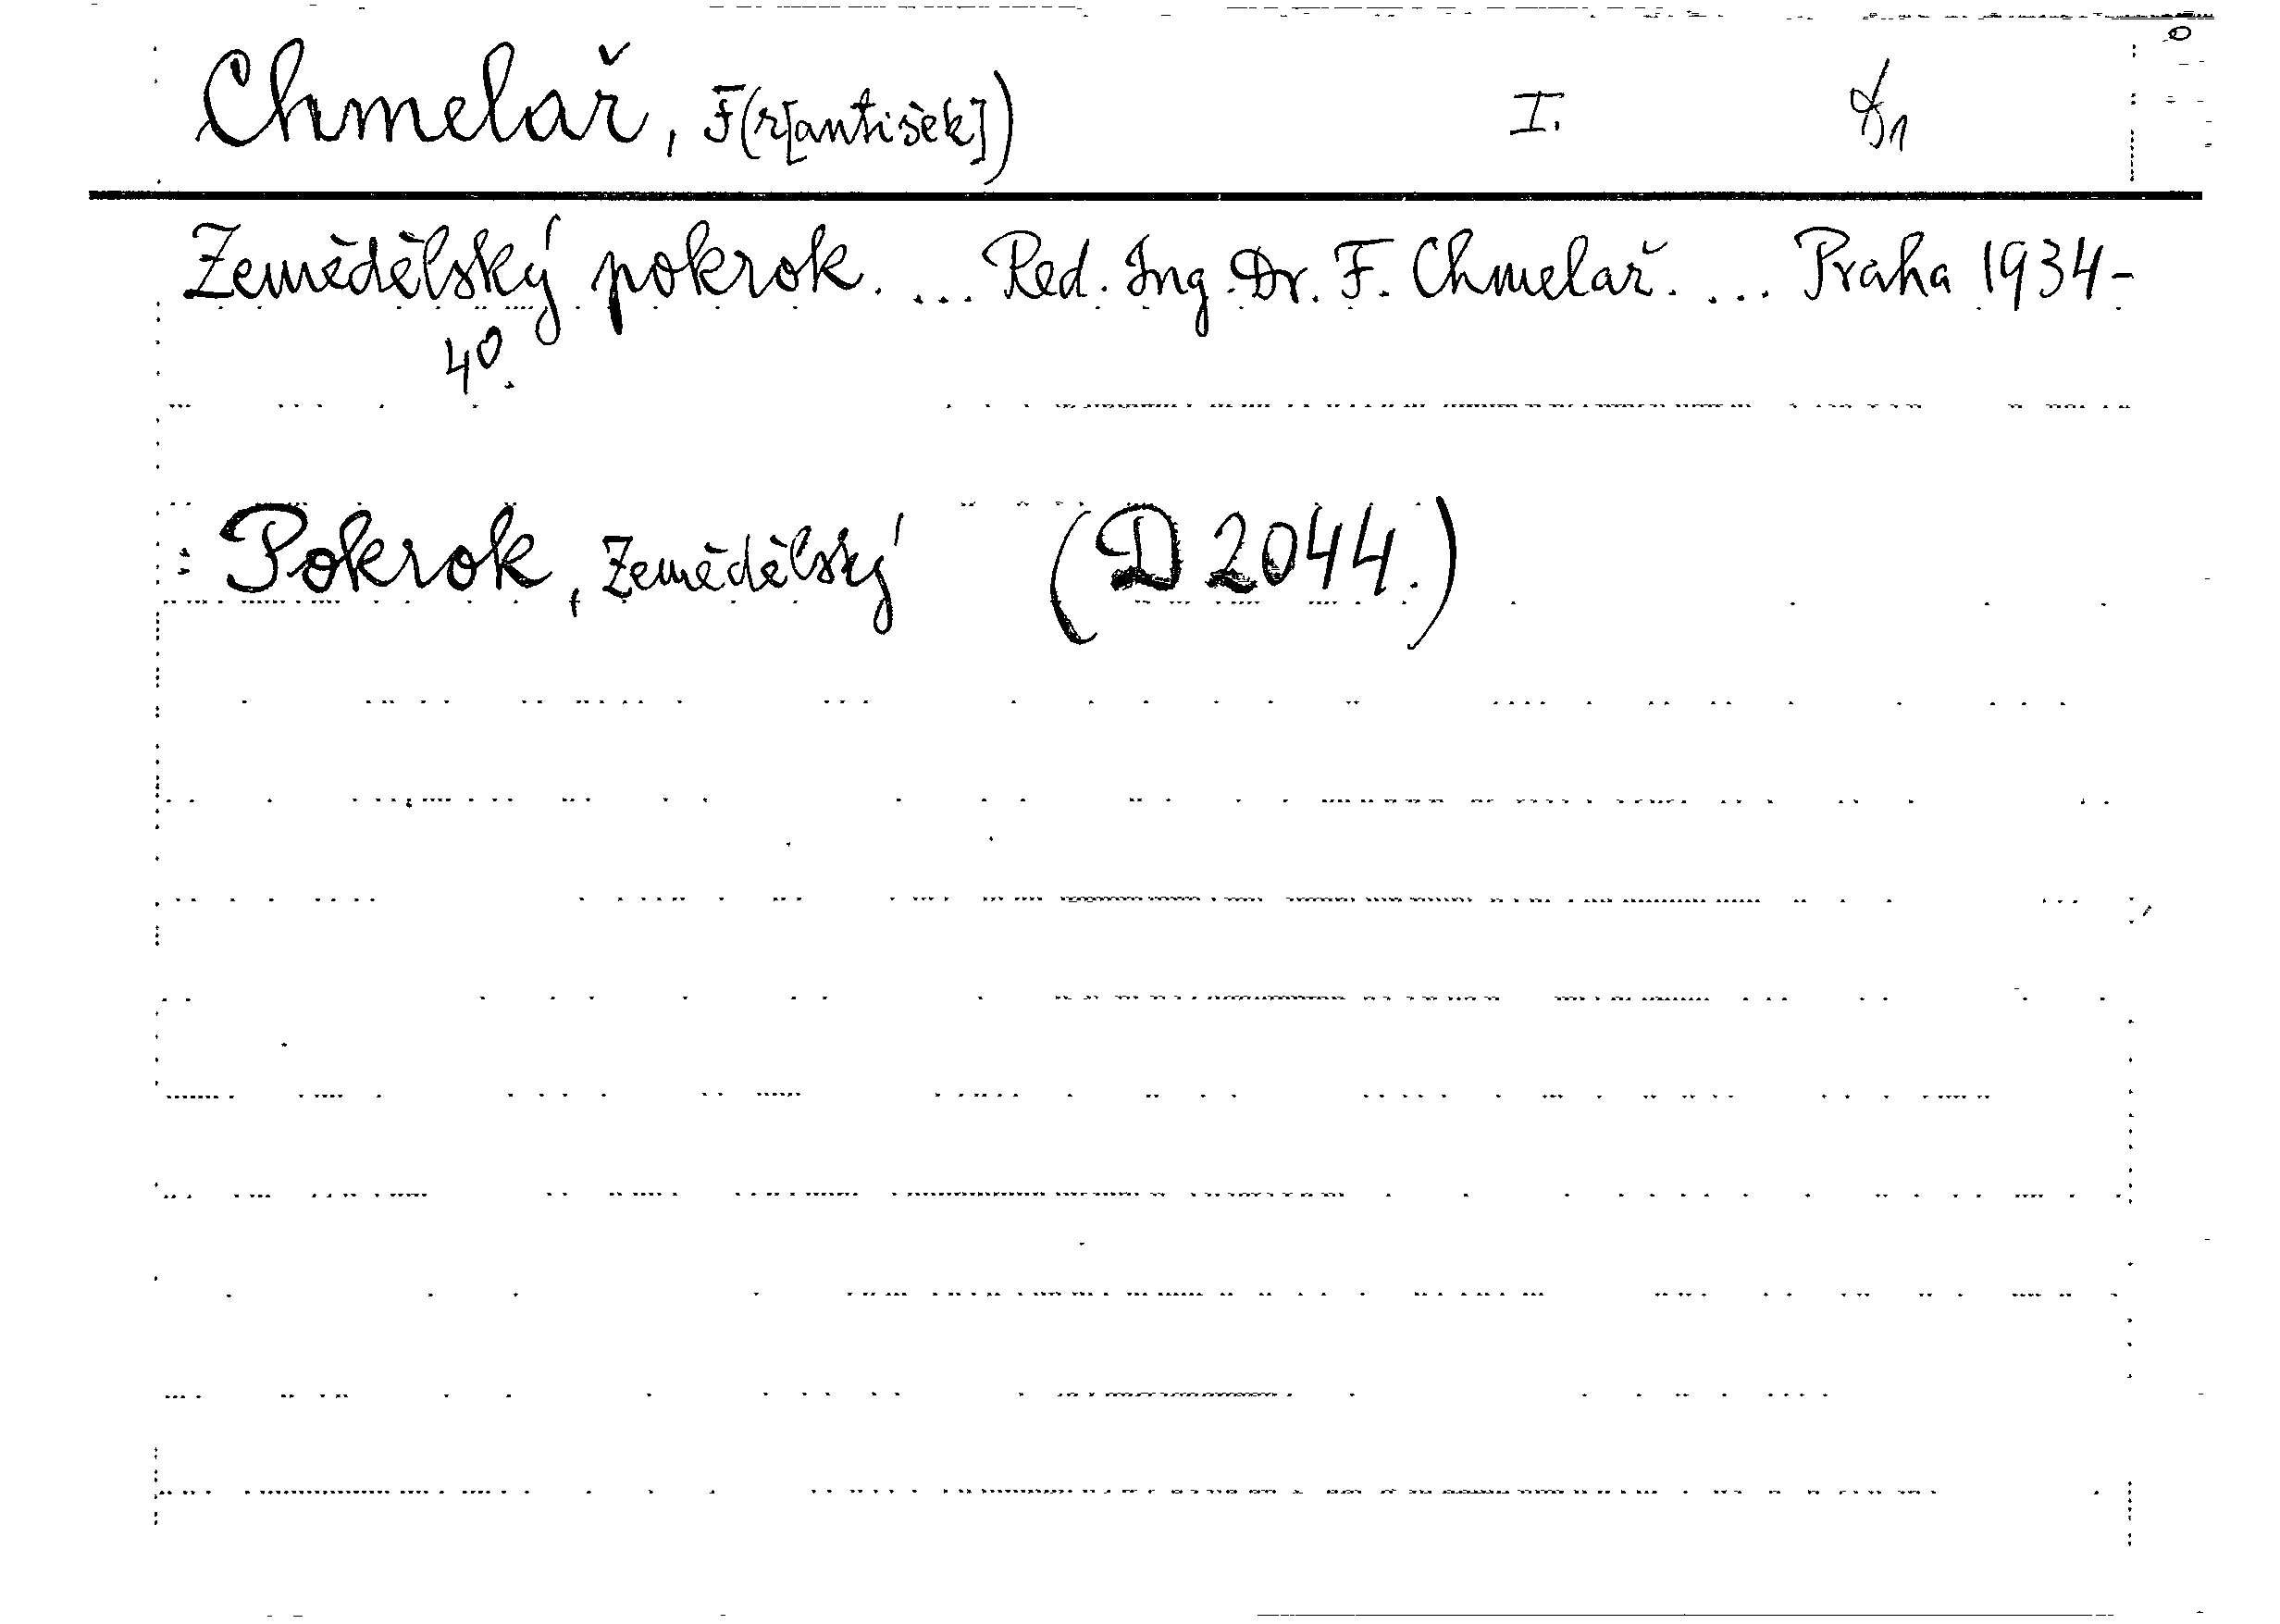 Chmelař, F(r[antišek]) I.
Zemědělský pokrok. ... Red. Ing. Dr. F. Chmelař. ... Praha 1934-
4°.
: Pokrok, Zemědělský (D 2044.)